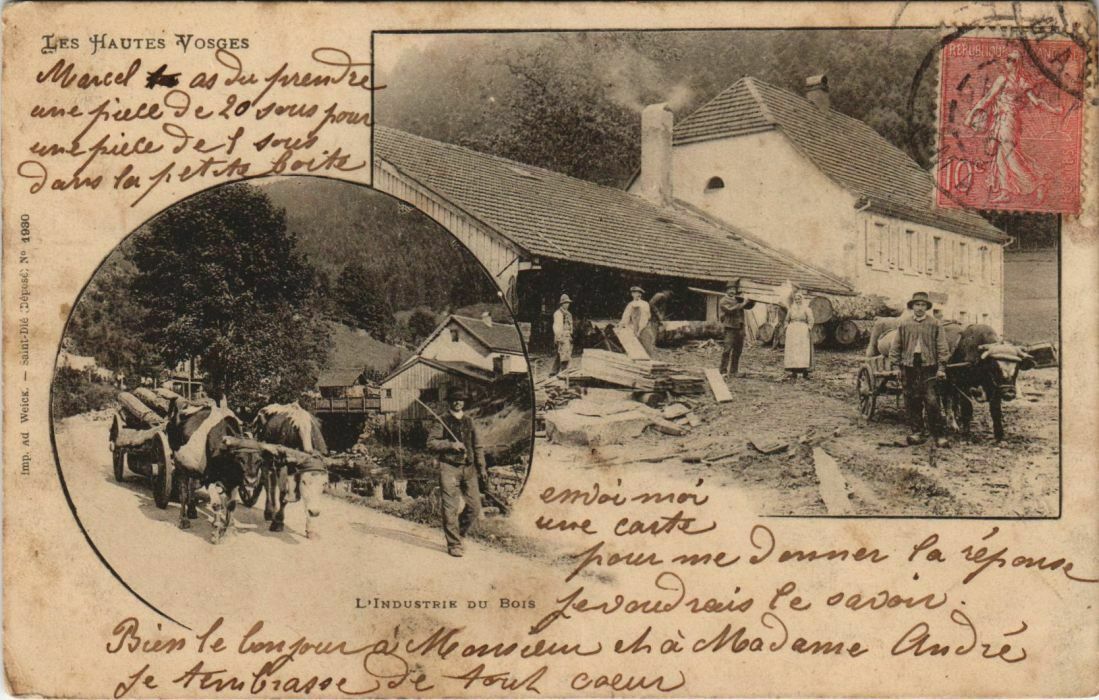 LES HAUTES VOSGES
Marcel tu as du prendre
une pièce de 20 sous pour
une pièce de 1 sous
dans la petite boite
RÉPUBLIQUE
10
Imp. Ad Weick. – Saint-Dié (Déposé) N° 1930
envoi moi
une carte
pour me donner la réponse
Je voudrais le savoir.
L'INDUSTRIE DU BOIS
Bien le bonjour à Monsieur et à Madame André
Je tembrasse de tout coeur